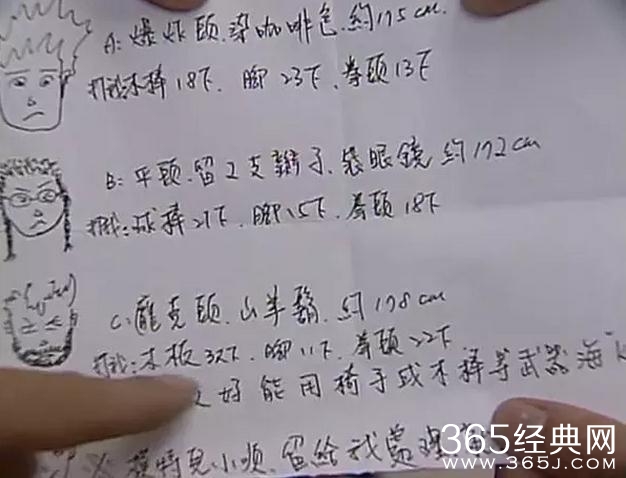 A: 爆炸頭.染咖啡色.約175cm.
打我:木棒18下.腳23下.拳頭13下
B: 平頭.留2支辮子.戴眼鏡 約172cm
打我:球棒27下.腳15下.拳頭18下
C: 龐克頭.山羊鬍.約178cm
打我:木板32下.腳11下.拳頭22下
好能用椅子或木棒等武器海K
模特兒小順.留給我處理
365经典网
www.365J.com